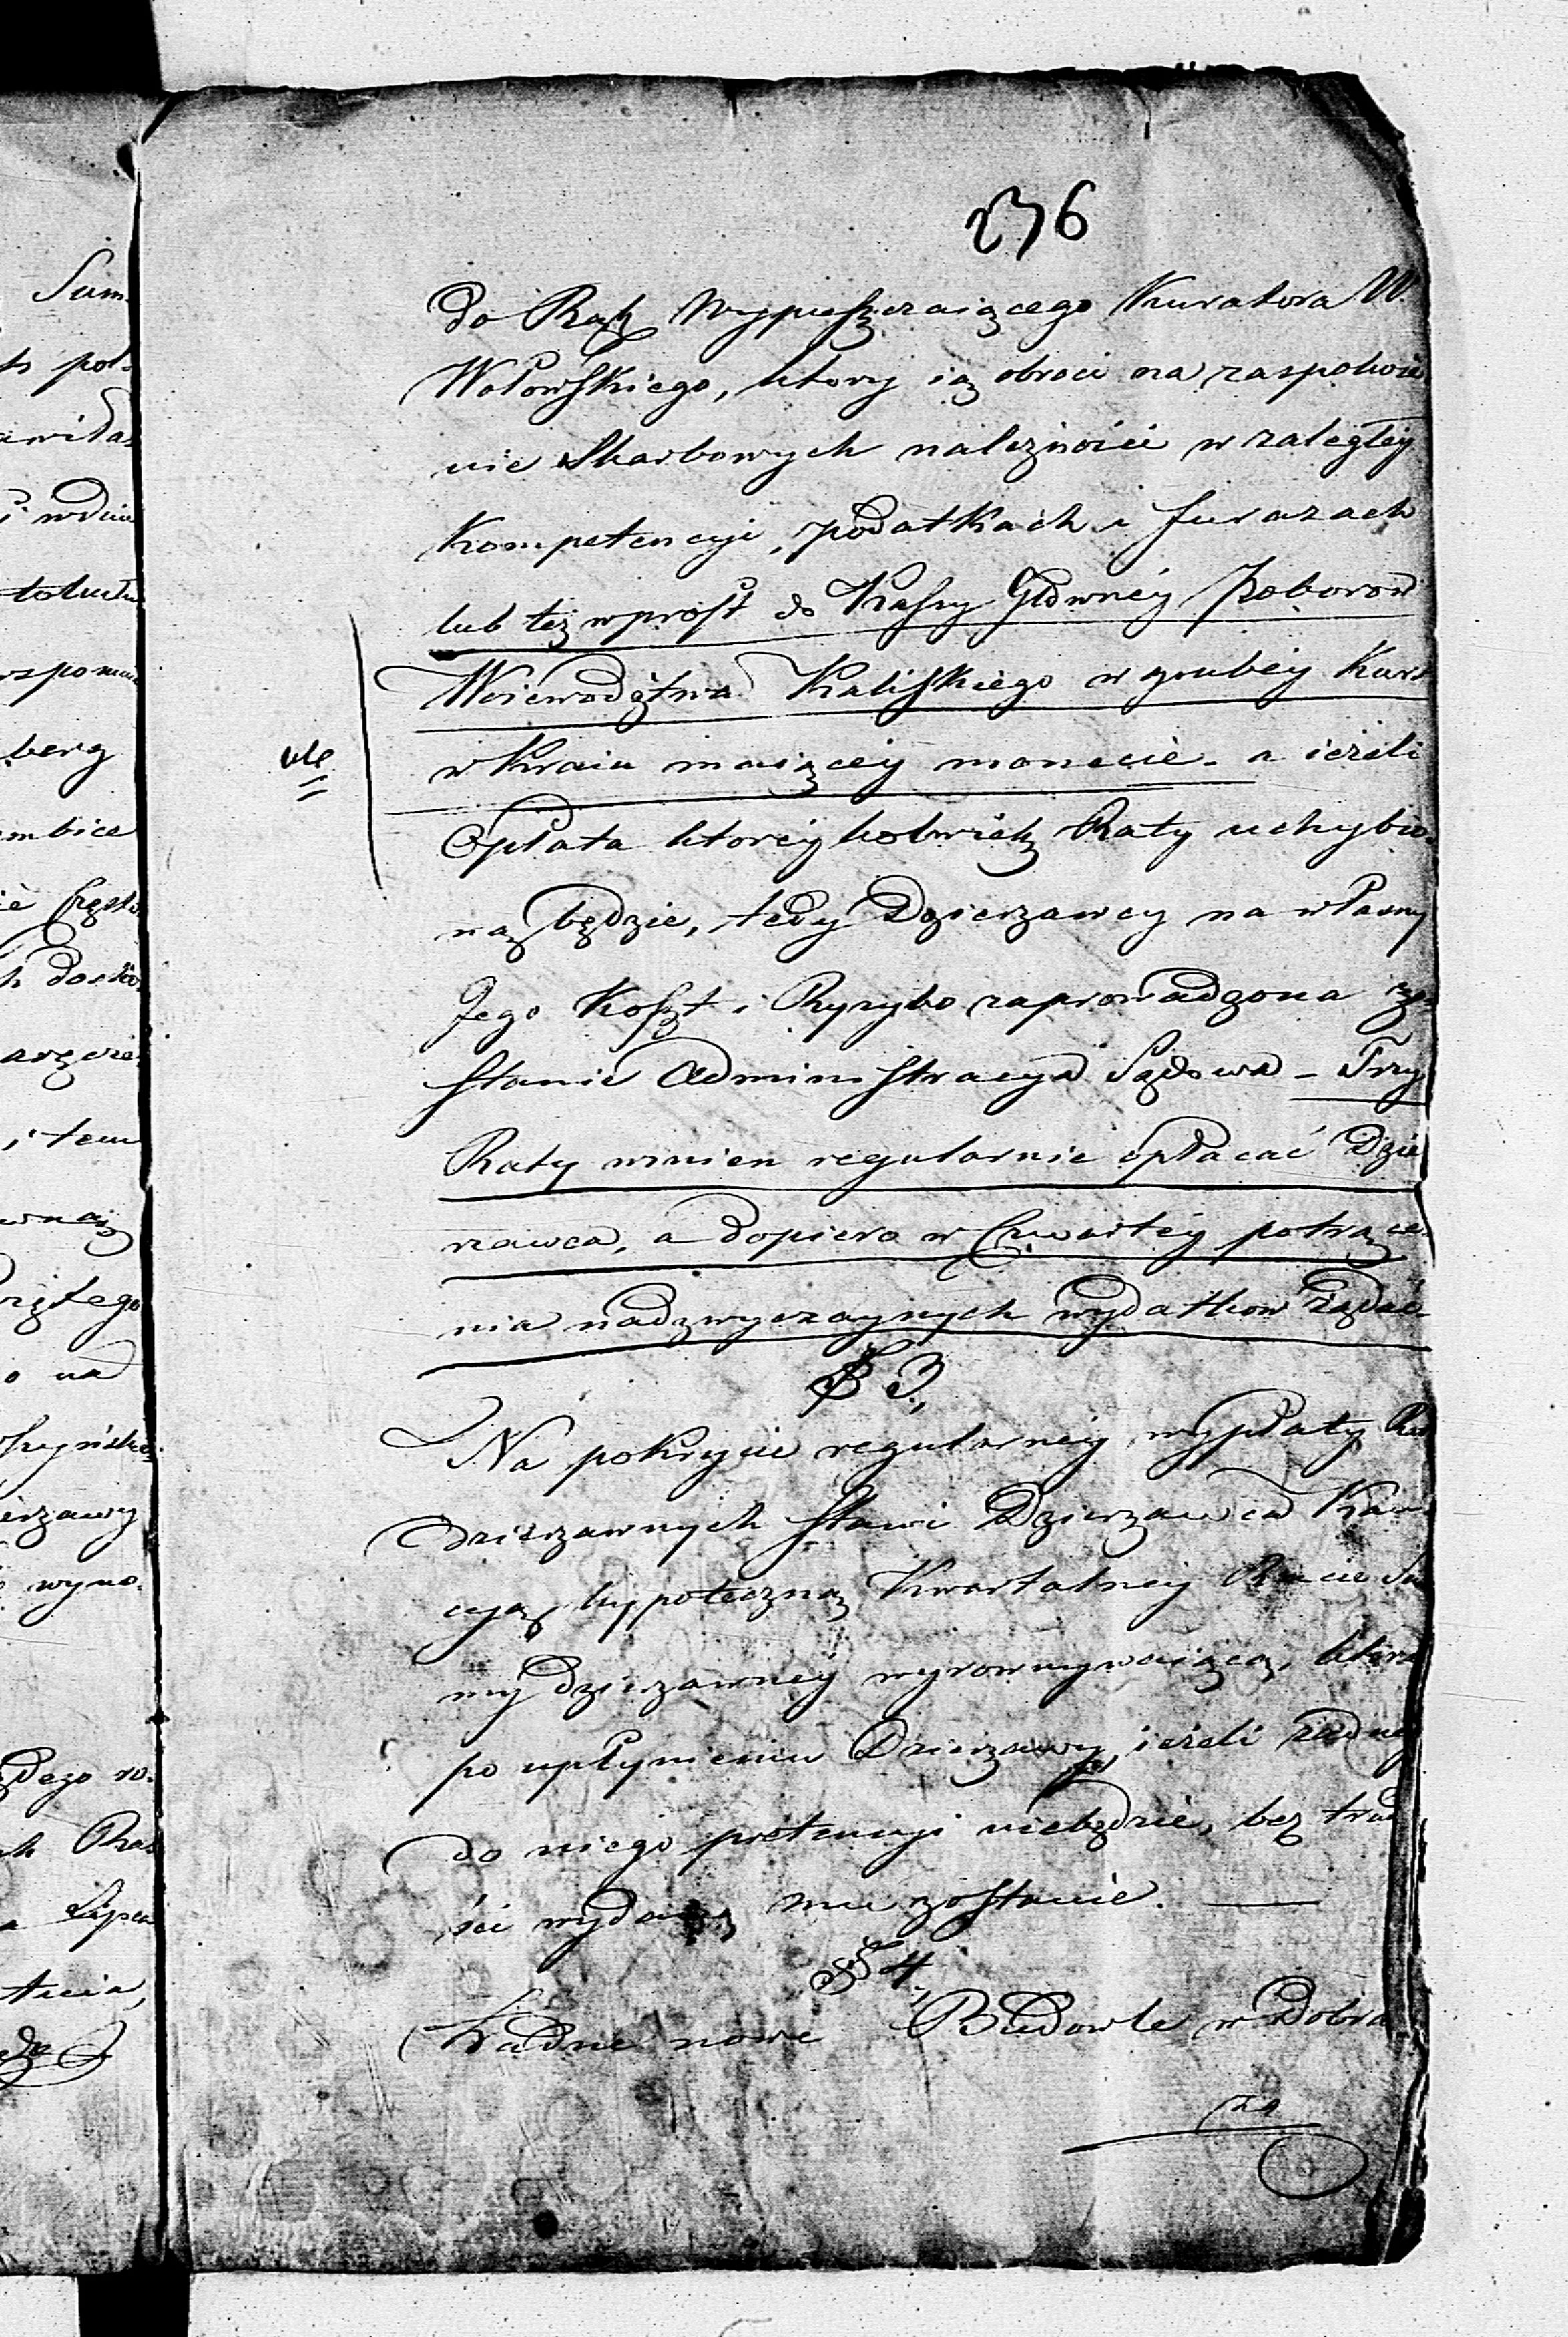 236
do Rąk Wypuszczaiącego Kuratora W.
Wołowskiego, ktory ią obroci na zaspokoie
nie Skarbowych należności w zaległéy
Kompetencyi, podatkach i furazach
lub też wprost do Kassy Głównéy Poborow
Woiewodztwa Kaliskiego w grubéy Kurs
w Kraiu maiącéy monecie. a ieżeli
Opłata ktoréykolwiek Raty uchybio
ną będzie, tedy Dzierzawcy na własny
Jego Koszt i Ryzyko zaprowadzona zo
stanie Administracya Sądowa – Trzy
Raty winien regularnie opłacać Dzie
rzawca, a dopiero w Czwartéy potrące
nia nadzwyczaynych wydatkow żądać.
§ 3,
Na pokrycie regularnéy wypłaty Rat
dzierzawnych stawi Dzierzawca Kau
cyą hypoteczną Kwartalnéy Racie Su
my dzierzawnéy wyrownywaiącą, ktora
po upłynieniu Dzierzawy, ieżeli żadnéy
do niego pretensyi niebędzie, bez trud
ści wydaną mu zostanie. —
§ 4,
Żadne nowe Budowle w Dobra
Sum
pol
widas
i wdniu
berg
mbice
ie Często
i tem
wną
o na
wyno.
Rat
Lipca